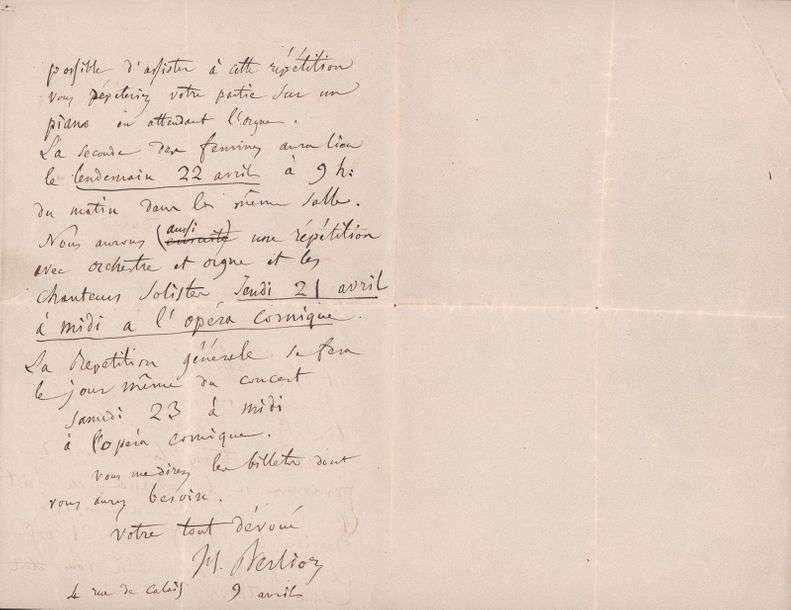 possible d'assister à cette répétition
vous répéteriez votre partie sur un
piano en attendant l'orgue.
La seconde des femmes aura lieu
le lendemain 22 avril à 9 h:
du matin dans la même salle.
Nous aurons (aussi ensuite) une répétition
avec orchestre et orgue et les
chanteurs solistes Jeudi 21 avril
à midi a l'opéra comique.
La Repetition générale se fera
le jour même du concert
Samedi 23 à midi
à l'opéra comique.
vous me direz les billets dont
vous aurez besoin.
Votre tout dévoué
H. Berlioz
4 rue de Calais 9 avril